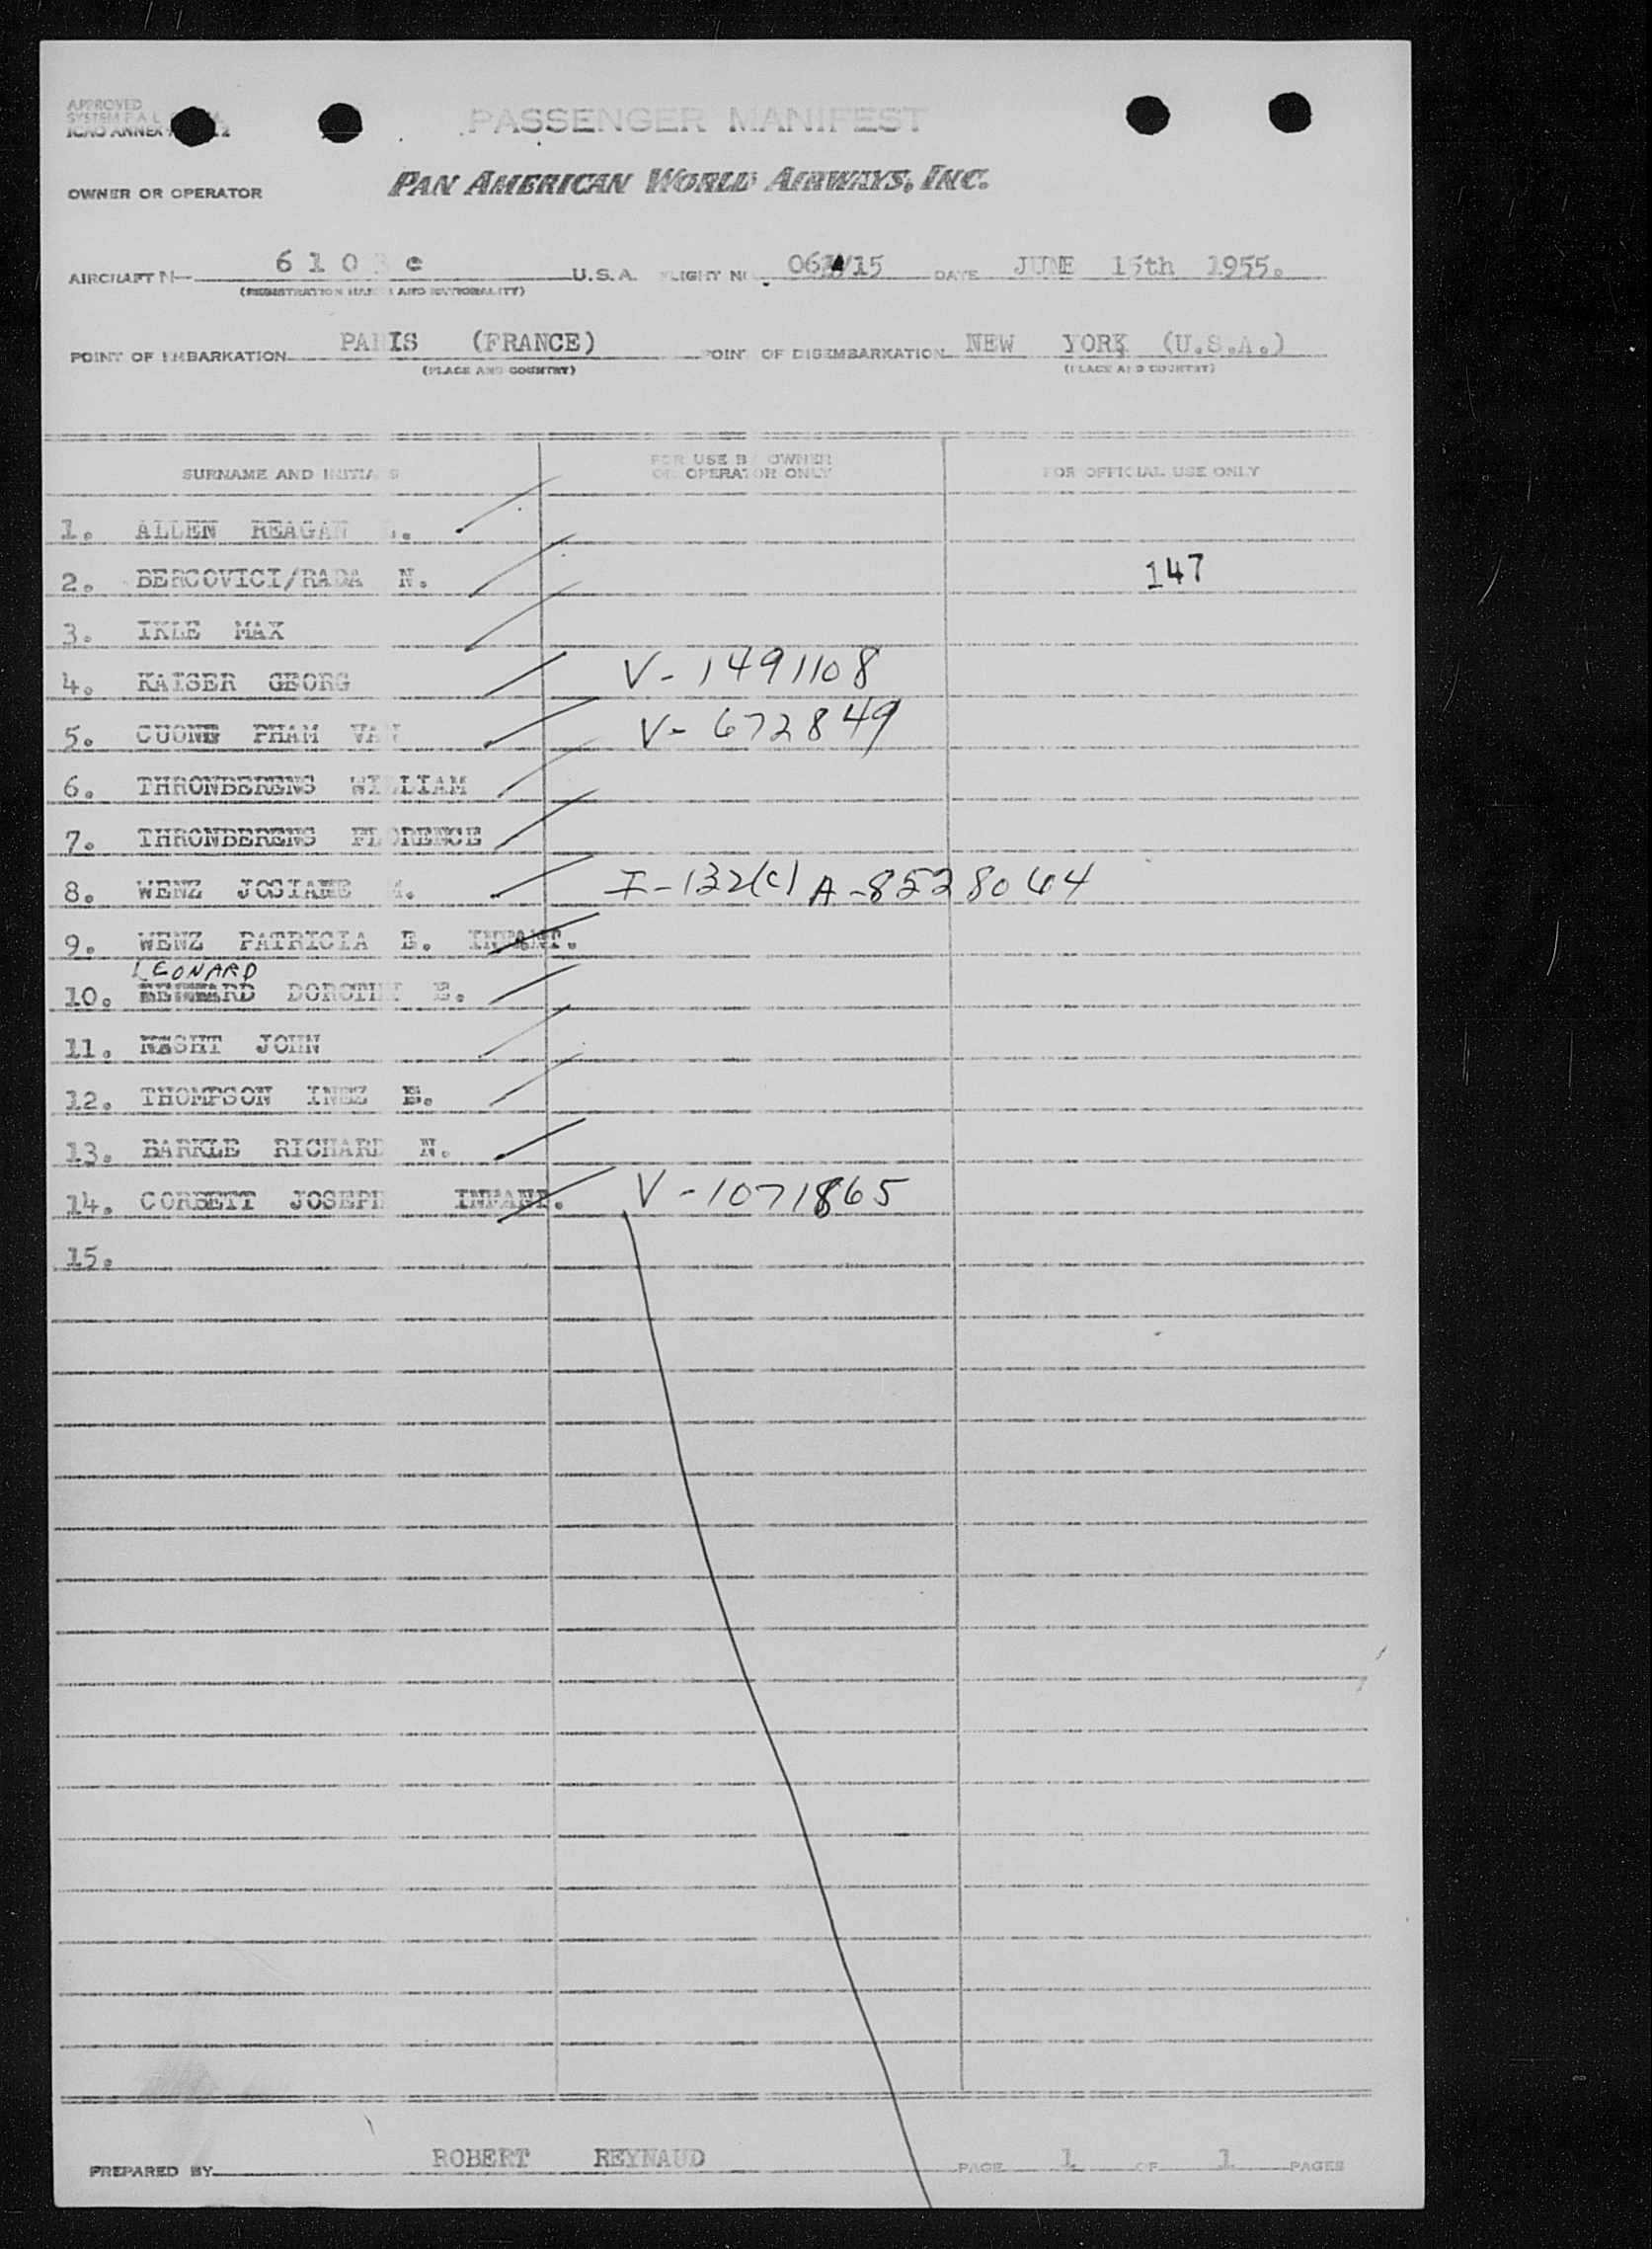 APPROVED
SYSTEM F.A.L
ICAO ANNEX
PASSENGER MANIFEST
OWNER OR OPERATOR PAN AMERICAN WORLD AIRWAYS, INC.
AIRCRAFT N 6 1 0 c U.S.A. FLIGHT NO. /15 DATE JUNE 15th 1955.
(REGISTRATION MARKS AND NATIONALITY)
POINT OF EMBARKATION PARIS (FRANCE) POINT OF DISEMBARKATION NEW YORK (U.S.A.)
(PLACE AND COUNTRY) (PLACE AND COUNTRY)
SURNAME AND INITIALS FOR USE BY OWNER OR OPERATOR ONLY FOR OFFICIAL USE ONLY
1. ALLEN REAGAN
2. BERCOVICI/RADA N. 147
3. IKLE MAX
4. KAISER GEORG V-1491108
5. CUONG PHAM VAN V-672849
6. THRONBERENS WILLIAM
7. THRONBERENS FLORENCE
8. WENZ JOSIANE M. I-132(c) A-8528064
9. WENZ PATRICIA E. INFANT.
LEONARD
10. DOROTHY E.
11. NASHT JOHN
12. THOMPSON INEZ E.
13. BARKLE RICHARD N.
14. CORBETT JOSEPH INFANT. V-1071865
15.
PREPARED BY ROBERT REYNAUD PAGE 1 OF 1 PAGES